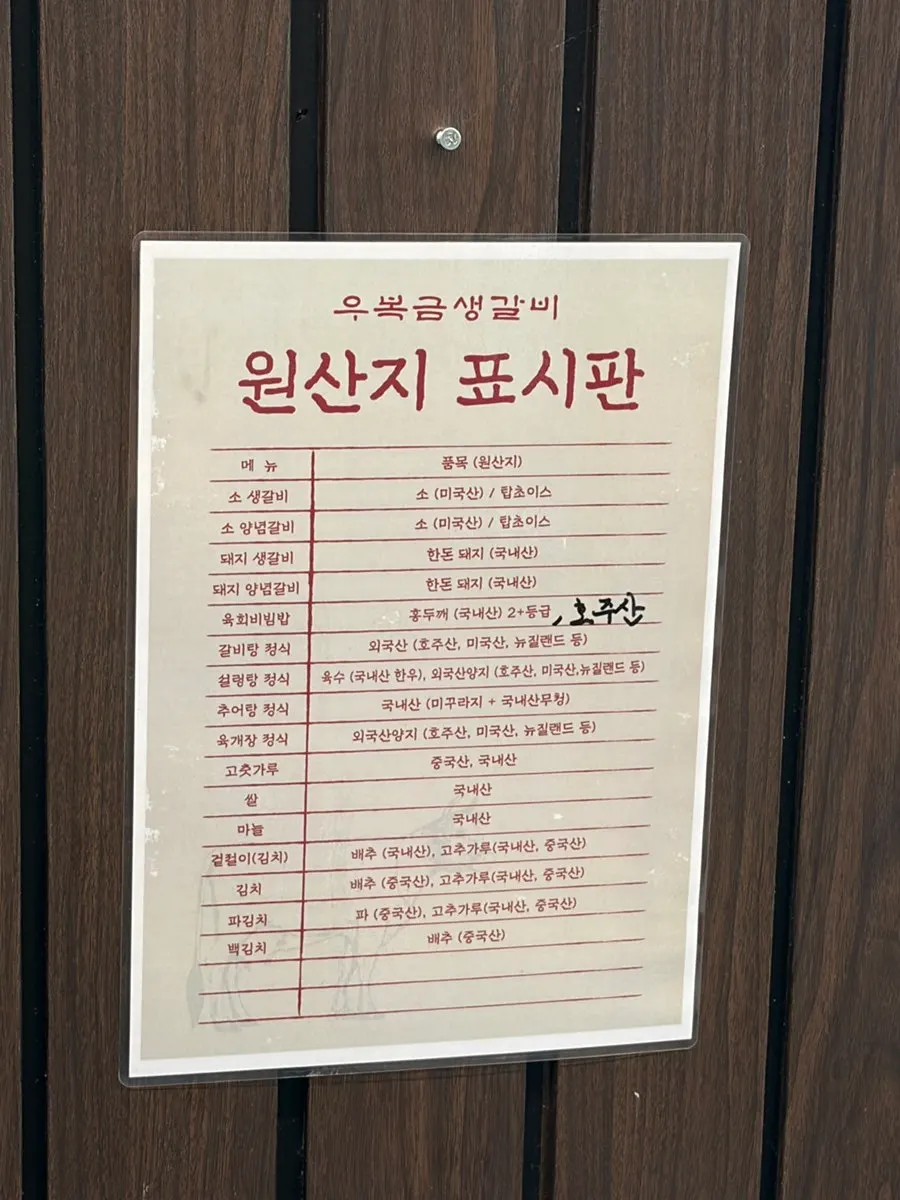 우복금생갈비
원산지 표시판
메 뉴 품목 (원산지)
소 생갈비 소 (미국산) / 탑초이스
소 양념갈비 소 (미국산) / 탑초이스
돼지 생갈비 한돈 돼지 (국내산)
돼지 양념갈비 한돈 돼지 (국내산)
육회비빔밥 홍두깨 (국내산) 2+등급, 호주산
갈비탕 정식 외국산 (호주산, 미국산, 뉴질랜드 등)
설렁탕 정식 육수 (국내산 한우), 외국산양지 (호주산, 미국산,뉴질랜드 등)
추어탕 정식 국내산 (미꾸라지 + 국내산무청)
육개장 정식 외국산양지 (호주산, 미국산, 뉴질랜드 등)
고춧가루 중국산, 국내산
쌀 국내산
마늘 국내산
겉절이(김치) 배추 (국내산), 고추가루(국내산, 중국산)
김치 배추 (중국산), 고추가루(국내산, 중국산)
파김치 파 (중국산), 고추가루(국내산, 중국산)
백김치 배추 (중국산)